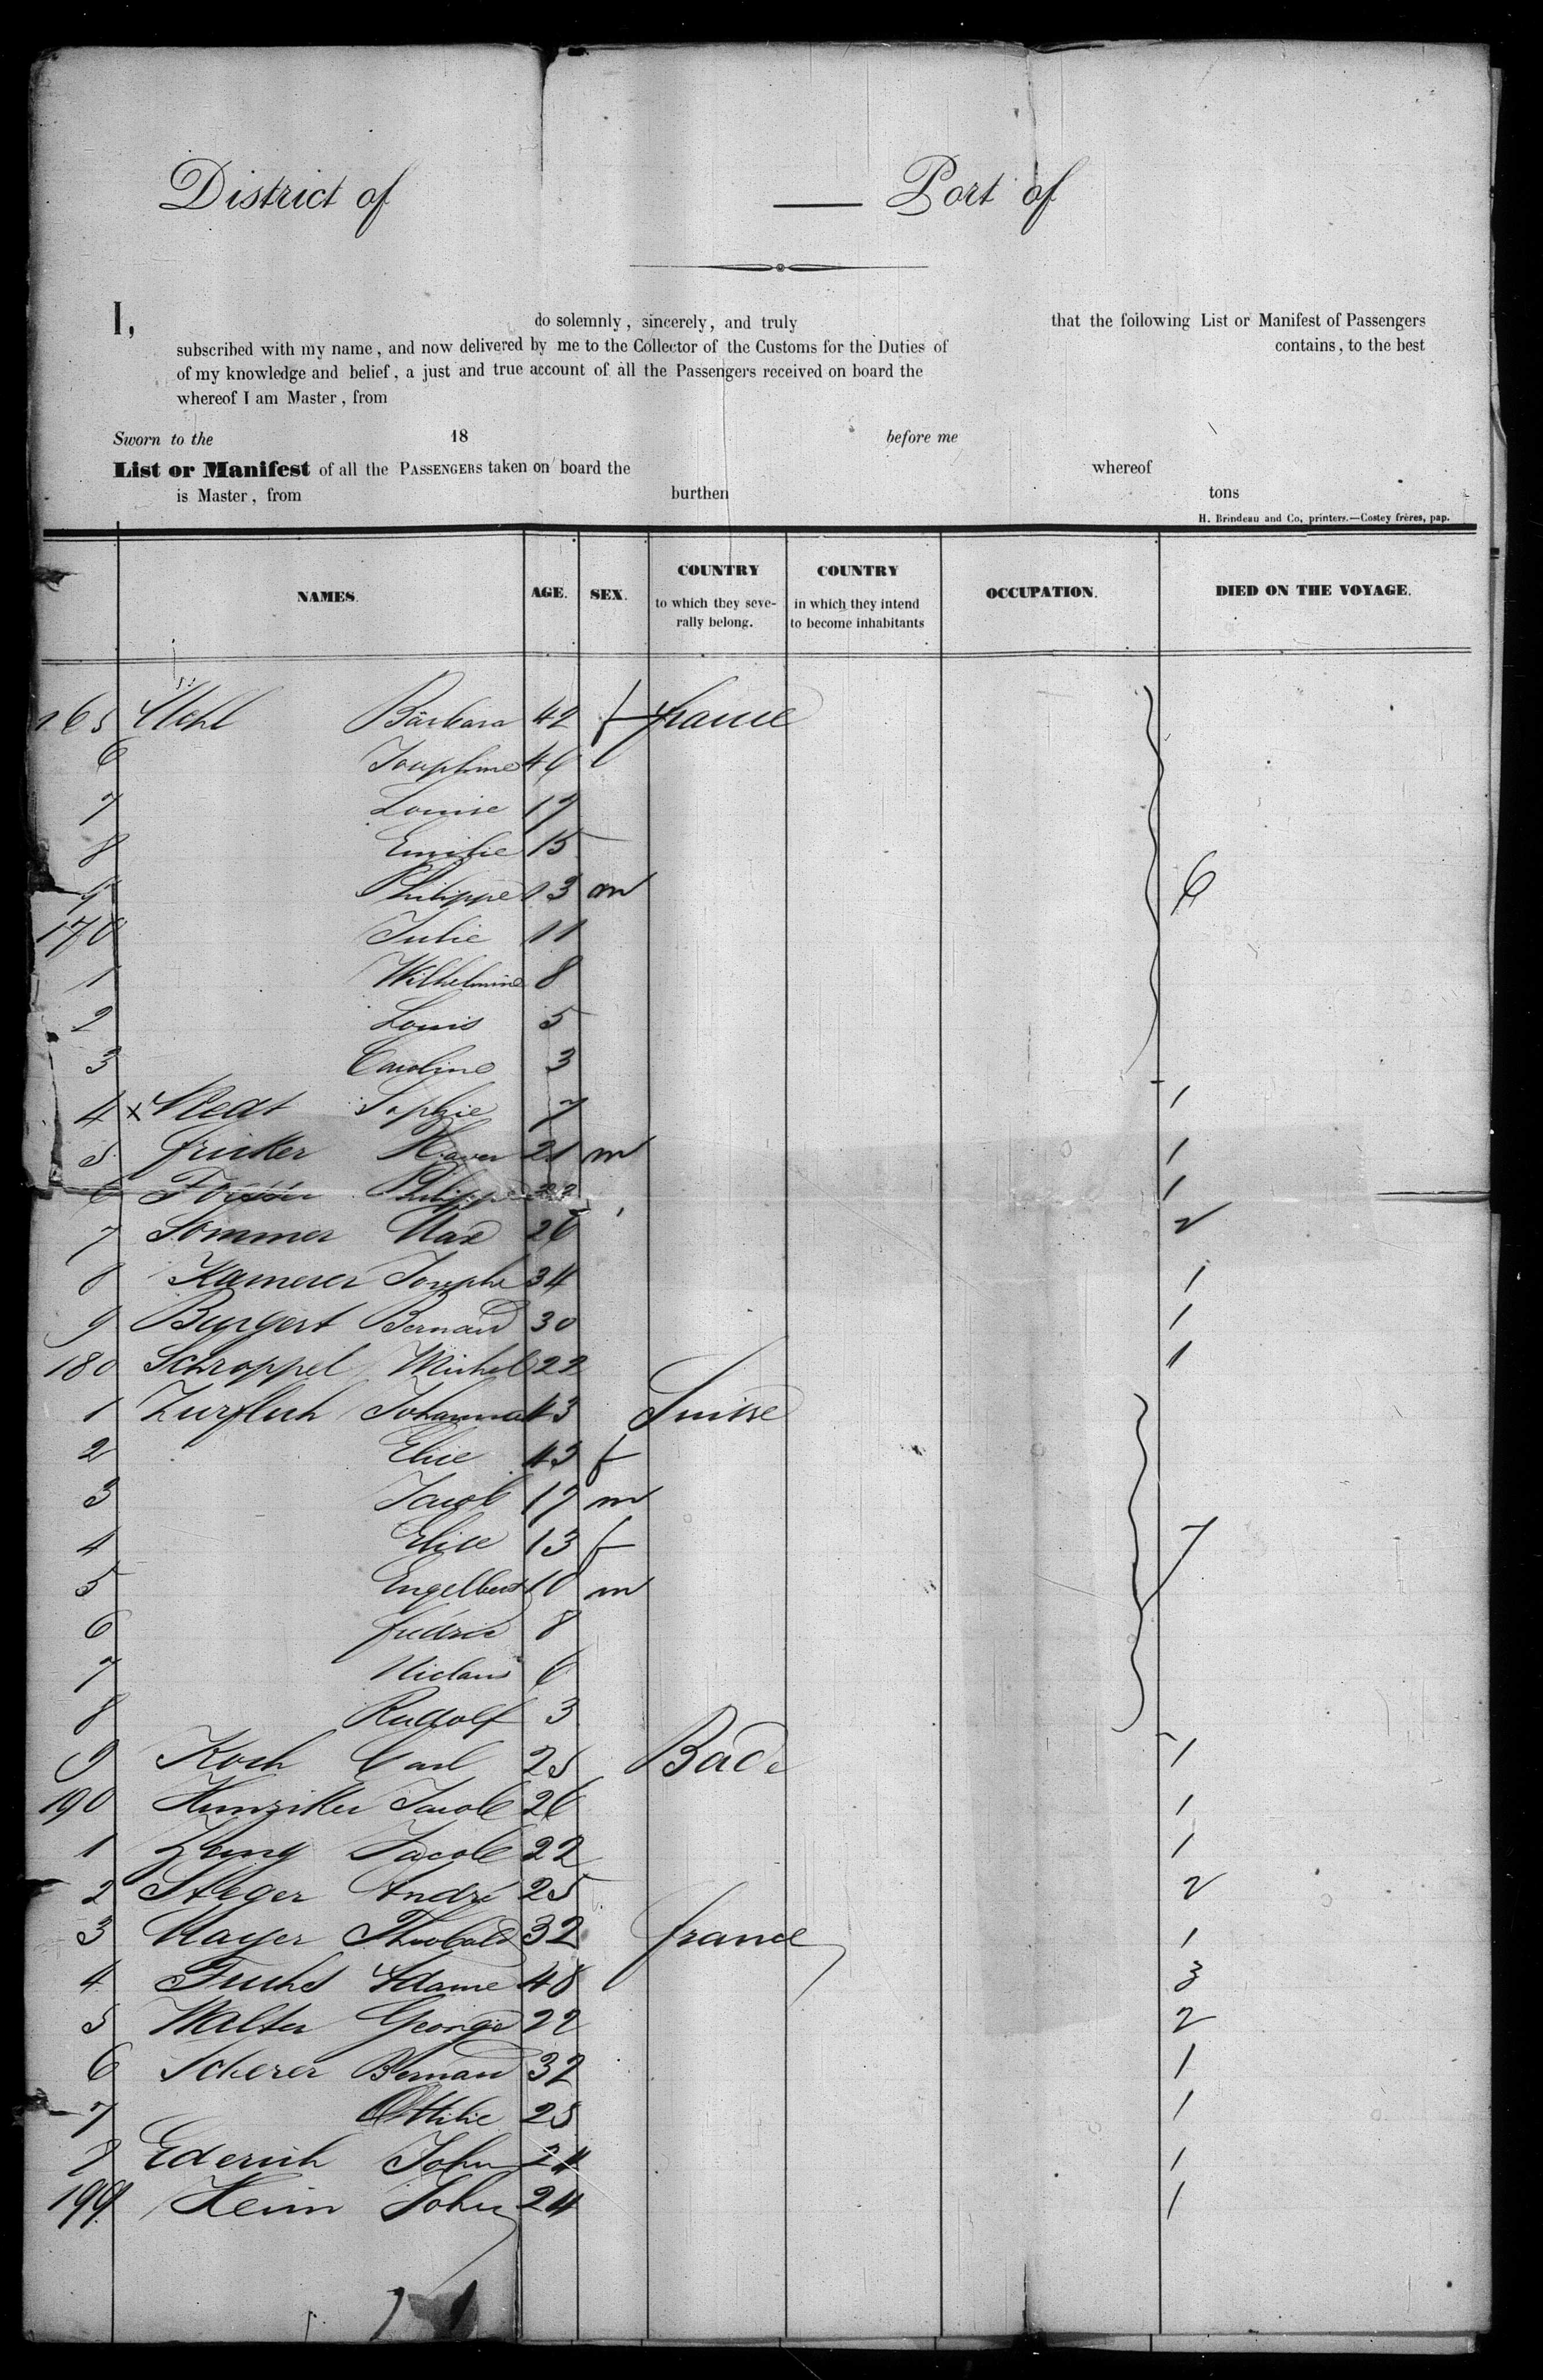 District of — Port of
I, do solemnly, sincerely, and truly that the following List or Manifest of Passengers
subscribed with my name, and now delivered by me to the Collector of the Customs for the Duties of contains, to the best
of my knowledge and belief, a just and true account of all the Passengers received on board the
whereof I am Master, from
Sworn to the 18 before me
List or Manifest of all the PASSENGERS taken on board the whereof
is Master, from burthen tons
H. Brindeau and Co, printers.—Costey frères, pap.
NAMES. AGE. SEX. COUNTRY to which they severally belong. COUNTRY in which they intend to become inhabitants OCCUPATION. DIED ON THE VOYAGE.
165 Barbara 42 f france
6 Josephine 46
7 Louise 17
8 Emilie 15
9 Philippe 13 m 6
170 Julie 11
1 Wilhelmine 8
2 Louis 5
3 Caroline 3
4 x Sophie 7 1
5 fricker Xaver 21 m 1
6 Philippe 22 1
7 Sommer Max 26 2
8 Kamerer Josephe 34 1
9 Burgert Bernard 30 1
180 Schroppel Michel 22 1
1 Zurfluh Johanna 43 Suisse
2 Elise 43 f
3 Jacob 17 m
4 Elise 13 f 7
5 Engelbert 10 m
6 fredric 8
7 Niclaus 6
8 Rudolf 3
9 Koch Carl 25 Bade 1
190 Hunziker Jacob 26 1
1 Jacob 22 1
2 Steger André 25 2
3 Mayer Theobald 32 france 1
4 Fuchs Adame 48 3
5 Walter George 22 2
6 Scherer Bernard 32 1
7 Ottilie 25 1
8 Ederich John 24 1
199 Heim John 24 1